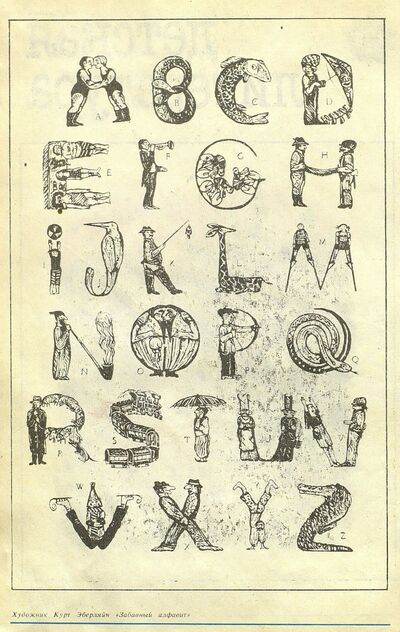 A B C D
E F G H
I J K L M
N O P Q
R S T U V
W X Y Z
Художник Курт Эберляйн «Забавный алфавит»